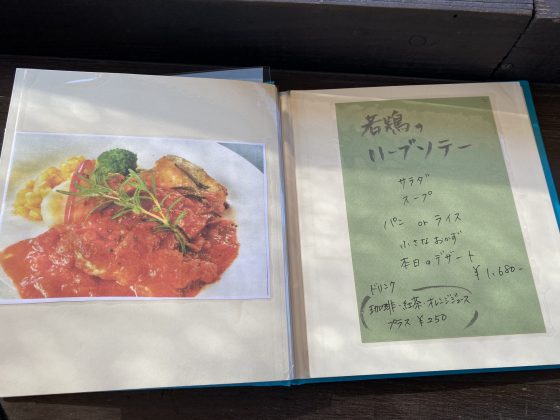 若鶏の
ハーブソテー
サラダ
スープ
パン or ライス
小さなおかず
本日のデザート
¥1,680-
ドリンク
(珈琲・紅茶・オレンジジュース
プラス ¥250)